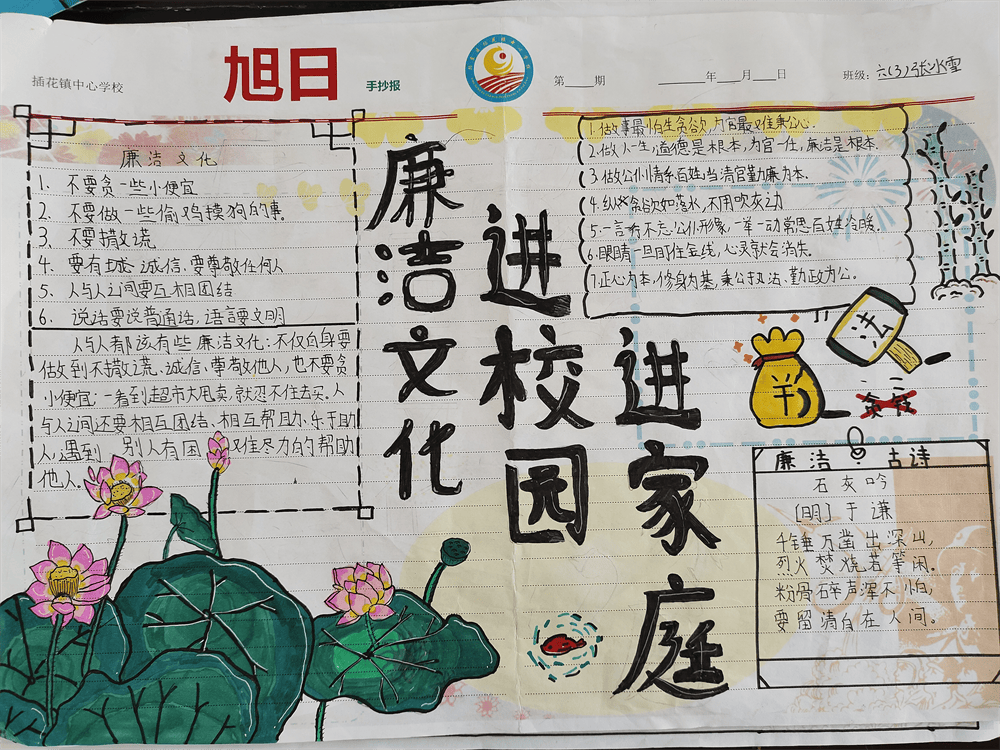 插花镇中心学校
旭日
手抄报
第 期
年 月 日
班级: 六(3)张冰雪
廉洁文化
1、不要贪一些小便宜
2、不要做一些偷鸡摸狗的事。
3、不要撒谎
4、要有诚信、要尊敬任何人
5、人与人之间要互相团结
6、说话要说普通话,语言要文明
人与人都该有些廉洁文化:不仅自身要
做到不撒谎、诚信、尊敬他人,也不要贪
小便宜一看到超市大甩卖,就忍不住去买。人
与人之间还要相互团结、相互帮助、乐于助
人,遇到 别人有困 难尽力的帮助
他人。
廉洁文化
进校园
进家庭
1.做事最怕生贪欲,为官最难秉公心。
2.做人一生,道德是根本,为官一任,廉洁是根本.
3.做公仆情系百姓,当清官勤廉为本.
4.纵 贪欲如落水,不用吹灰之力
5.一言 不忘公仆形象,一举一动常思百姓冷暖.
6.眼睛一旦盯住金钱,心灵就会消失.
7.正心为本,修身为基,秉公执法、勤政为公。
法
¥
廉洁 古诗
石灰吟
[明]于谦
千锤万凿出深山,
烈火焚烧若等闲。
粉骨碎声浑不怕,
要留清白在人间。